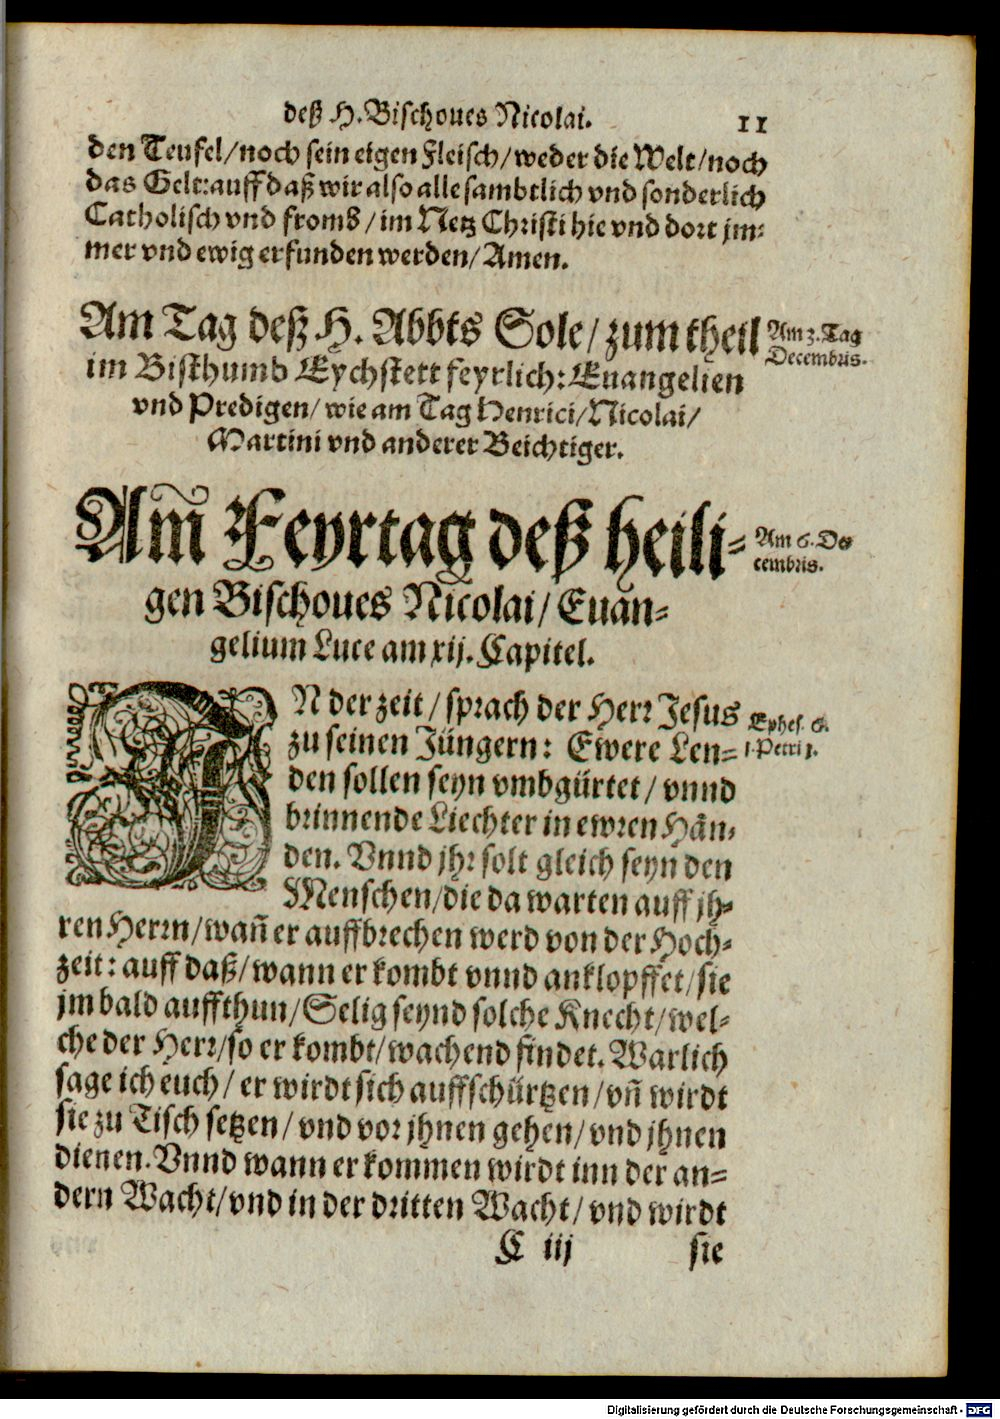 deß H. Bischoues Nicolai. 11
den Teufel/ noch sein eigen Fleisch/ weder die Welt/ noch
das Gelt: auff daß wir also alle sambtlich vnd sonderlich
Catholisch vnd from̃/ im Netz Christi hie vnd dort jm:
mer vnd ewig erfunden werden/ Amen.
Am Tag deß H. Abbts Sole/ zum theil
Am 3. Tag
Decembris.
im Bisthumb Eychstett feyrlich: Euangelien
vnd Predigen/ wie am Tag Henrici/ Nicolai/
Martini vnd anderer Beichtiger.
Am̃ Feyrtag deß heili-
Am 6. De
cembris.
gen Bischoues Nicolai/ Euan-
gelium Luce am xij. Capitel.
IN der zeit/ sprach der Herr Jesus
Ephes. 6.
zu seinen Jüngern: Ewere Len-
1. Petri 1.
den sollen seyn vmbgürtet/ vnnd
brinnende Liechter in ewren Hän-
den. Vnnd jhr solt gleich seyn den
Menschen/ die da warten auff jh-
ren Herrn/ wañ er auffbrechen werd von der Hoch-
zeit: auff daß/ wann er kombt vnnd anklopffet/ sie
jm bald auffthun/ Selig seynd solche Knecht/ wel-
che der Herr/ so er kombt/ wachend findet. Warlich
sage ich euch/ er wirdt sich auffschürtzen/ vñ wirdt
sie zu Tisch setzen/ vnd vor jhnen gehen/ vnd jhnen
dienen. Vnnd wann er kommen wirdt inn der an-
dern Wacht/ vnd in der dritten Wacht/ vnd wirdt
C iij sie
Digitalisierung gefördert durch die Deutsche Forschungsgemeinschaft - DFG